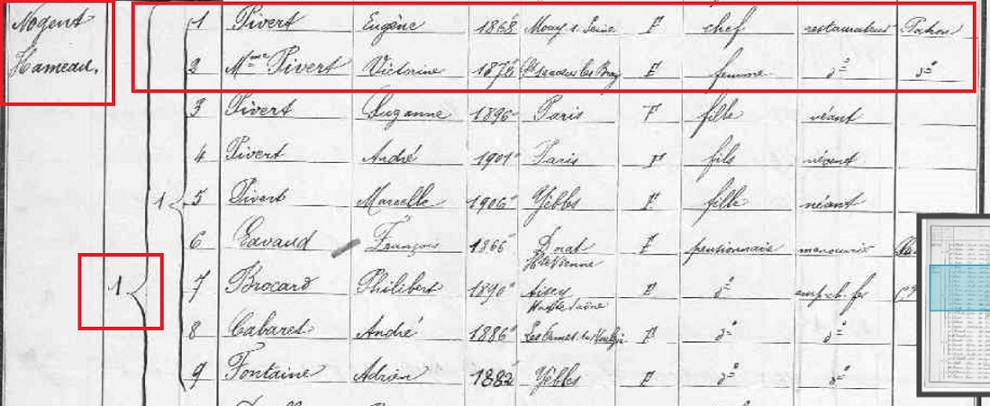 Nogent
Hameau.
1 Pivert Eugène 1868 Mouy s. Seine F chef restaurateur Patron
2 Mme Pivert Victorine 1876 les Bray F femme dº dº
3 Pivert Suzanne 1896 Paris F fille néant
4 Pivert André 1901 Paris F fils néant
1 5 Pivert Marcelle 1906 Yèbles F fille néant
6 François 1866 Dorat Hte Vienne F pensionnaire manouvrier
1 7 Brocard Philibert 1890 Haute Saône F dº emp. ch. fer
8 Cabaret André 1886 Les Ormes F dº dº
9 Fontaine Adrien 1882 Yèbles F dº dº